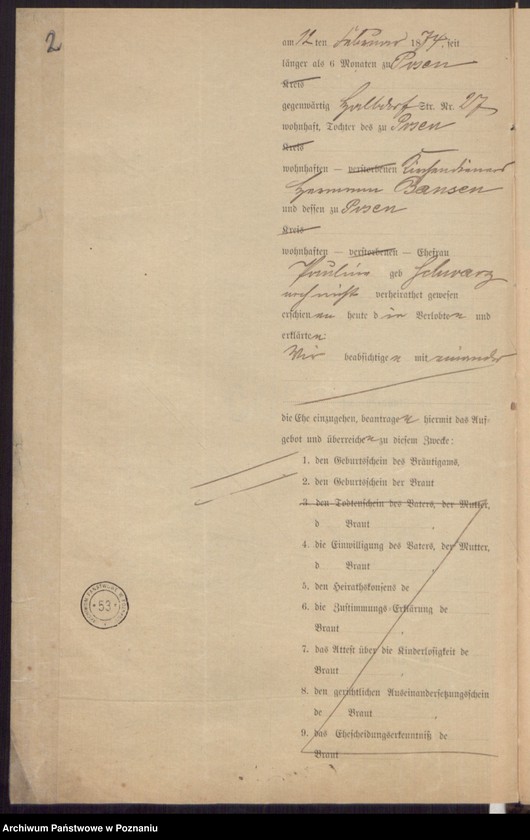 2
am 12 ten Februar 1874, seit
länger als 6 Monaten zu Posen
Kreis
gegenwärtig Halbdorf Str. Nr. 27
wohnhaft, Tochter des zu Posen
Kreis
wohnhaften — verstorbenen
Hermann Bansen
und dessen zu Posen
Kreis
wohnhaften — verstorbenen — Ehefrau
Pauline geb Schwarz
noch nicht verheirathet gewesen
erschienen heute die Verlobten und
erklärten:
Wir beabsichtigen mit einander
die Ehe einzugehen, beantragen hiermit das Auf-
gebot und überreichen zu diesem Zwecke:
1. den Geburtschein des Bräutigams,
2. den Geburtschein der Braut
3. den Todtenschein des Vaters, der Mutter,
d Braut
4. die Einwilligung des Vaters, der Mutter,
d Braut
5. den Heirathskonsens de
6. die Zustimmungs-Erklärung de
Braut
7. das Attest über die Kinderlosigkeit de
Braut
8. den gerichtlichen Auseinandersetzungsschein
de Braut
9. das Ehescheidungserkenntniß de
Braut
53
Archiwum Państwowe w Poznaniu